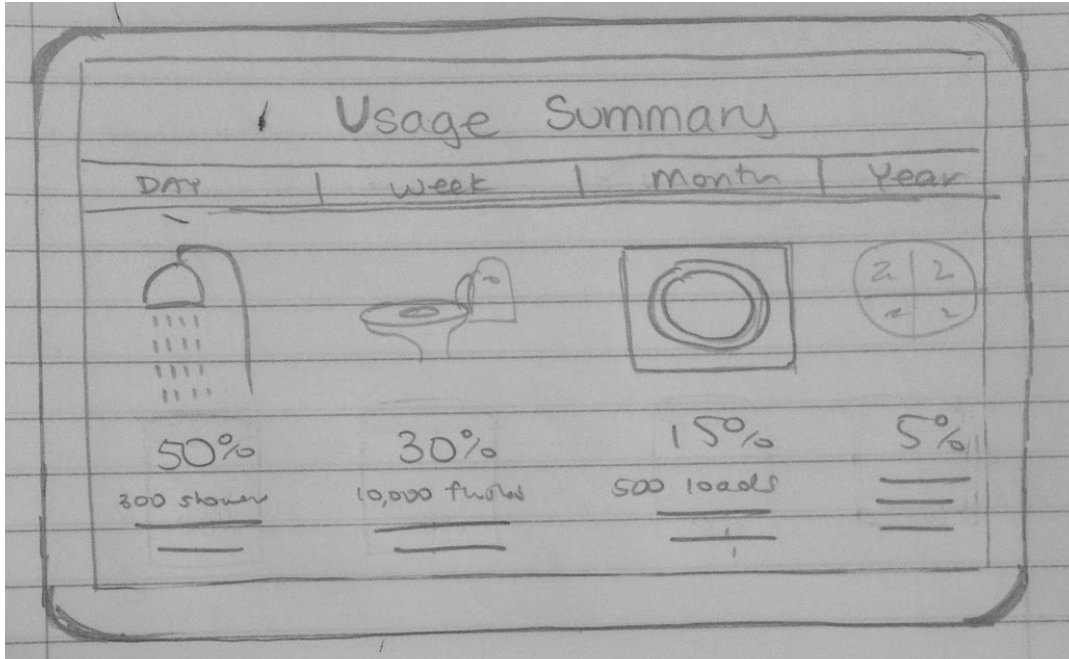 Usage Summary
DAY | week | Month | Year
2 2
50% 30% 15% 5%
300 showers 10,000 flushes 500 loads